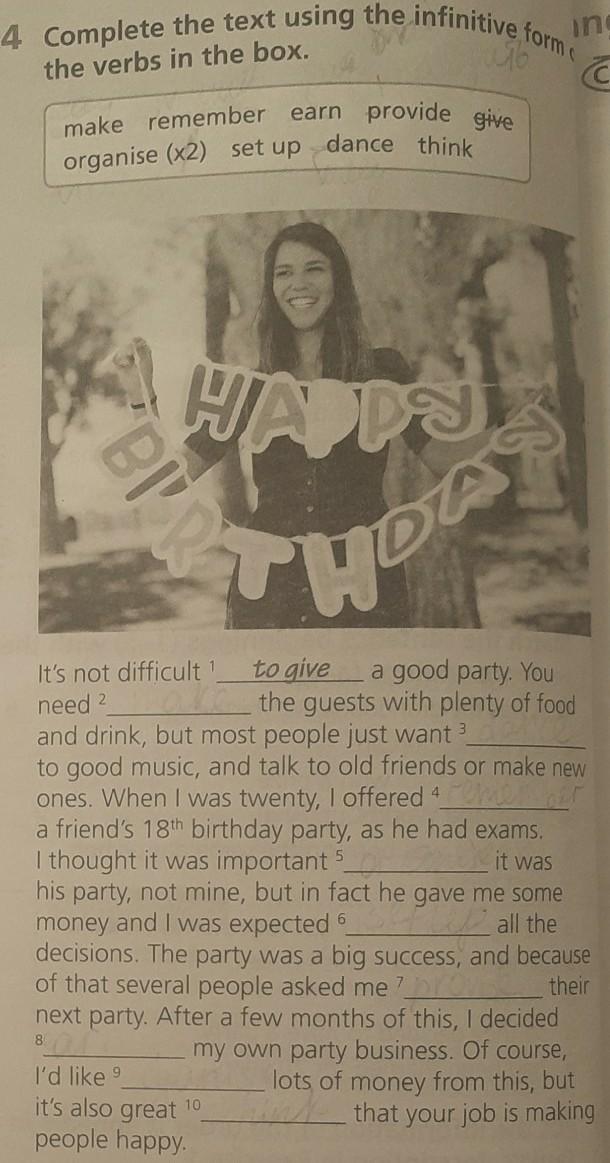 4 Complete the text using the infinitive form
the verbs in the box.
make remember earn provide give
organise (x2) set up dance think
HAPPY
BIRTHDAY
It's not difficult ¹ to give a good party. You
need ²____________ the guests with plenty of food
and drink, but most people just want ³__________
to good music, and talk to old friends or make new
ones. When I was twenty, I offered ⁴___________
a friend's 18th birthday party, as he had exams.
I thought it was important ⁵____________ it was
his party, not mine, but in fact he gave me some
money and I was expected ⁶____________ all the
decisions. The party was a big success, and because
of that several people asked me ⁷____________ their
next party. After a few months of this, I decided
⁸____________ my own party business. Of course,
I'd like ⁹____________ lots of money from this, but
it's also great ¹⁰____________ that your job is making
people happy.